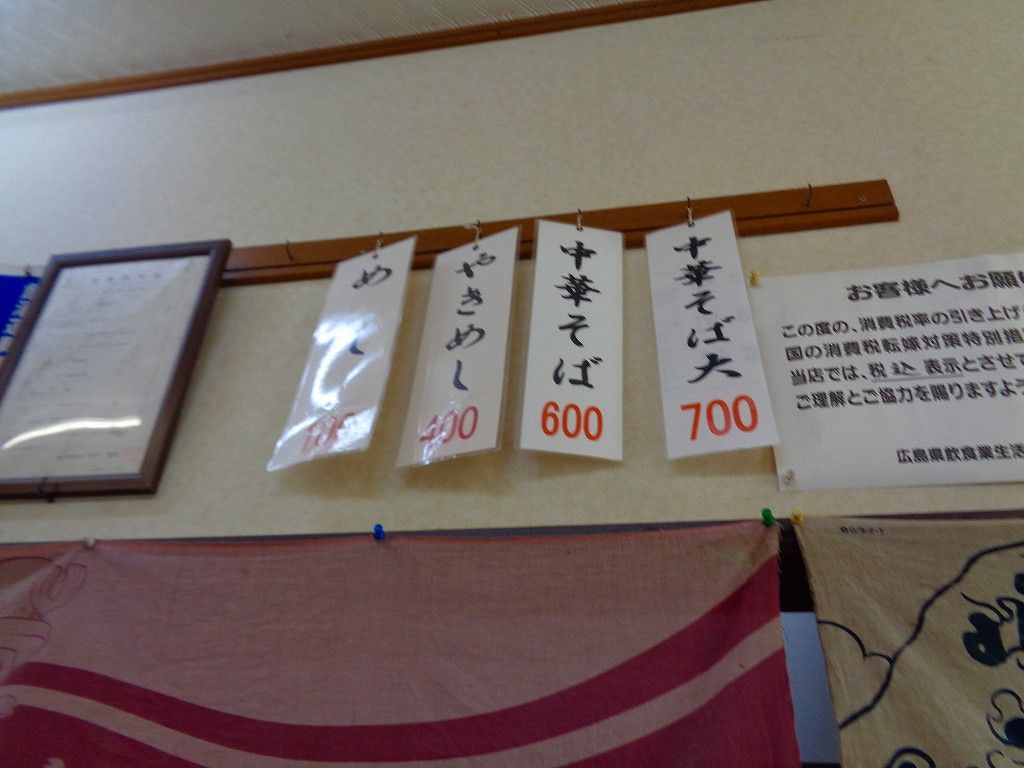 中華そば大
700
中華そば
600
やきめし
400
めし
お客様へお願
この度の、消費税率の引き上げ
国の消費税転嫁対策特別措
当店では、税込表示とさせて
ご理解とご協力を賜りますよう
広島県飲食業生活